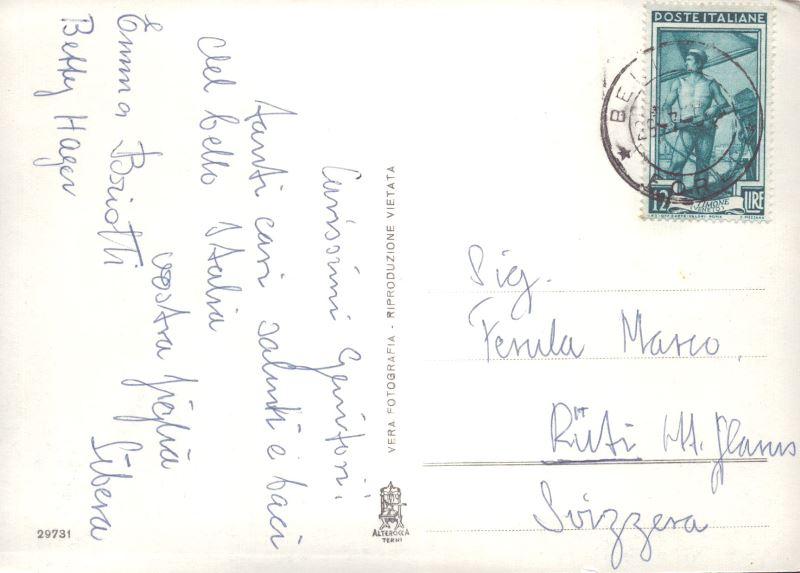 Carissimi Genitori.
Tanti cari saluti e baci
del bello Italia
vostra figlia
Libera
Emma Briotti
Betty Hager
VERA FOTOGRAFIA - RIPRODUZIONE VIETATA
ALTEROCCA
TERNI
29731
POSTE ITALIANE
12 LIRE
TIMONE
(VENETO)
Sig.
Ferula Marco,
Rüti Ct. Glarus
Svizzera